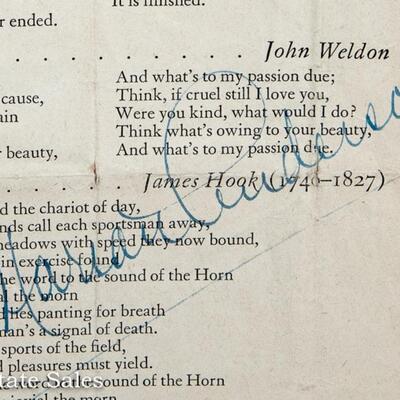 It is finished.
er ended.
. . . . . . . . . . John Weldon
And what's to my passion due;
cause, Think, if cruel still I love you,
ain Were you kind, what would I do?
Think what's owing to your beauty,
r beauty, And what's to my passion due.
. . . . . James Hook (1746–1827)
d the chariot of day,
nds call each sportsman away,
meadows with speed they now bound,
in exercise found
he word to the sound of the Horn
al the morn
d lies panting for breath
man's a signal of death.
sports of the field,
d pleasures must yield.
sound of the Horn
vial the morn
tate Sales